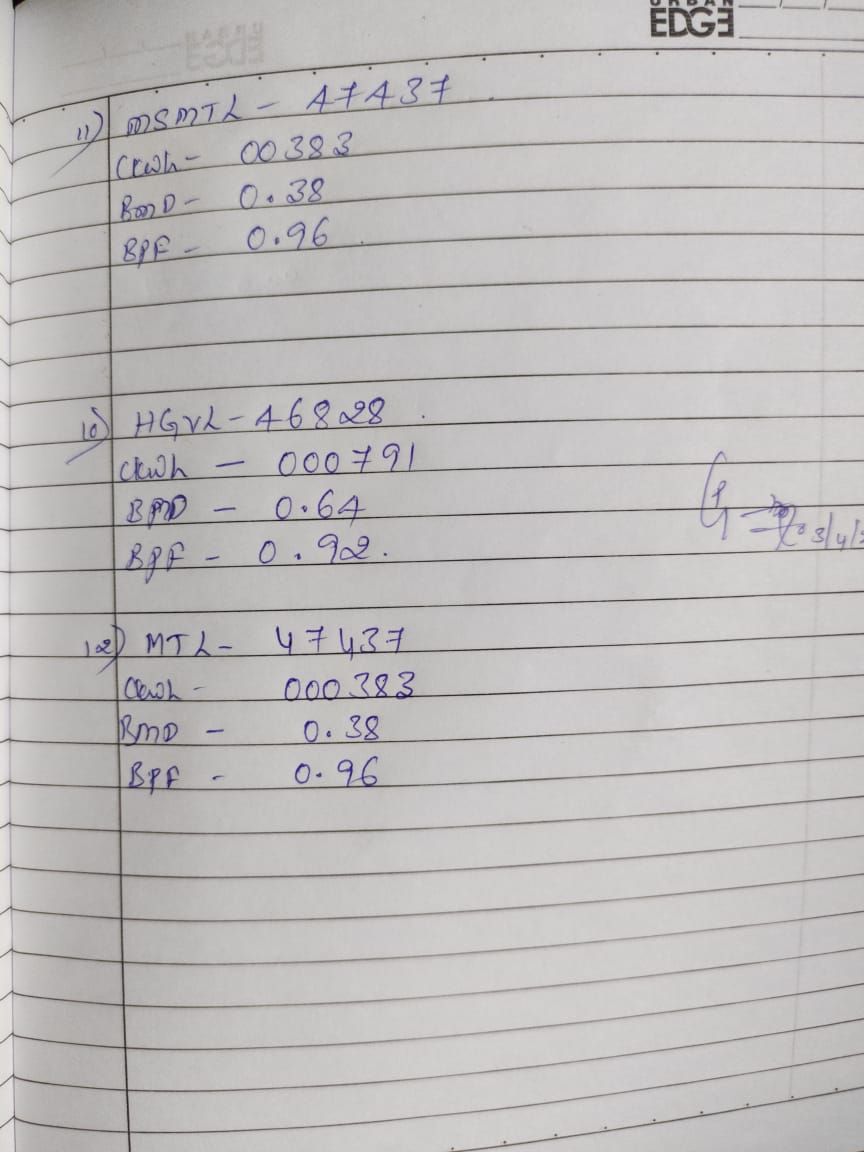 URBAN
EDGE
11) MSMTL - 47437
CKWh - 00383
BMD - 0.38
BPF - 0.96
10) HGVL - 46828
CKWh - 000791
BMD - 0.64
BPF - 0.92.
3/4/2
12) MTL - 47437
CKWh - 000383
BMD - 0.38
BPF - 0.96